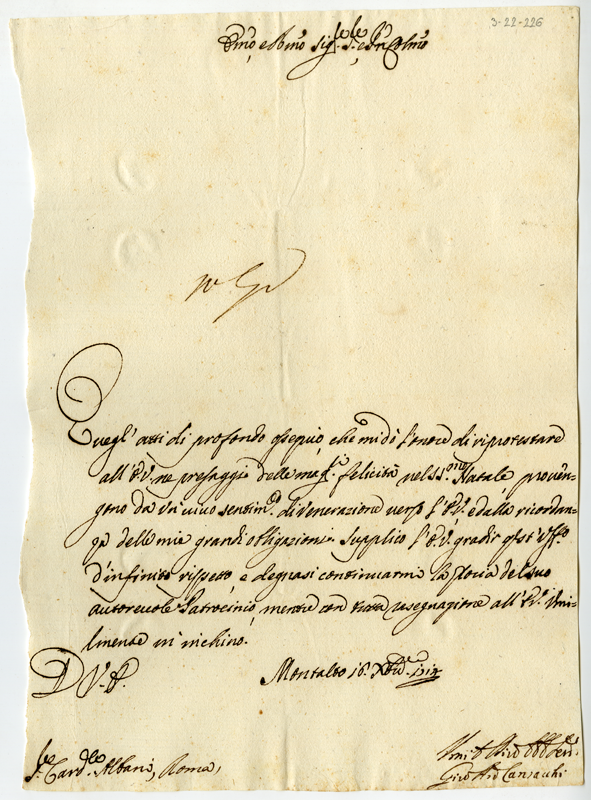 3-22-226
Emo e Rmo Sig.re Sig.re e Pron Colmo
Quegl' atti di profondo ossequio, che mi dò l'onore di riprotestare
all' E.V. ne presaggio delle mag.ri felicità nel SS.mo Natale, proven-
gono da un vivo sentim.to di venerazione verso l'E.V. e dalla ricordan-
za delle mie grandi obligazioni. Supplico l'E.V. gradir quest' Uff.o
d'infinito rispetto, e degnasi continuarmi la gloria del suo
autorevole Patrocinio, mentre con tutta rasegnazione all' E.V. Umi-
lmente m' inchino.
D V. E.
Montalto 16. Xbre
S.r Card.le Albani, Roma,